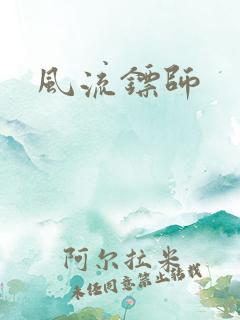 風流鏢師
阿尔拉米
未经同意禁止转载